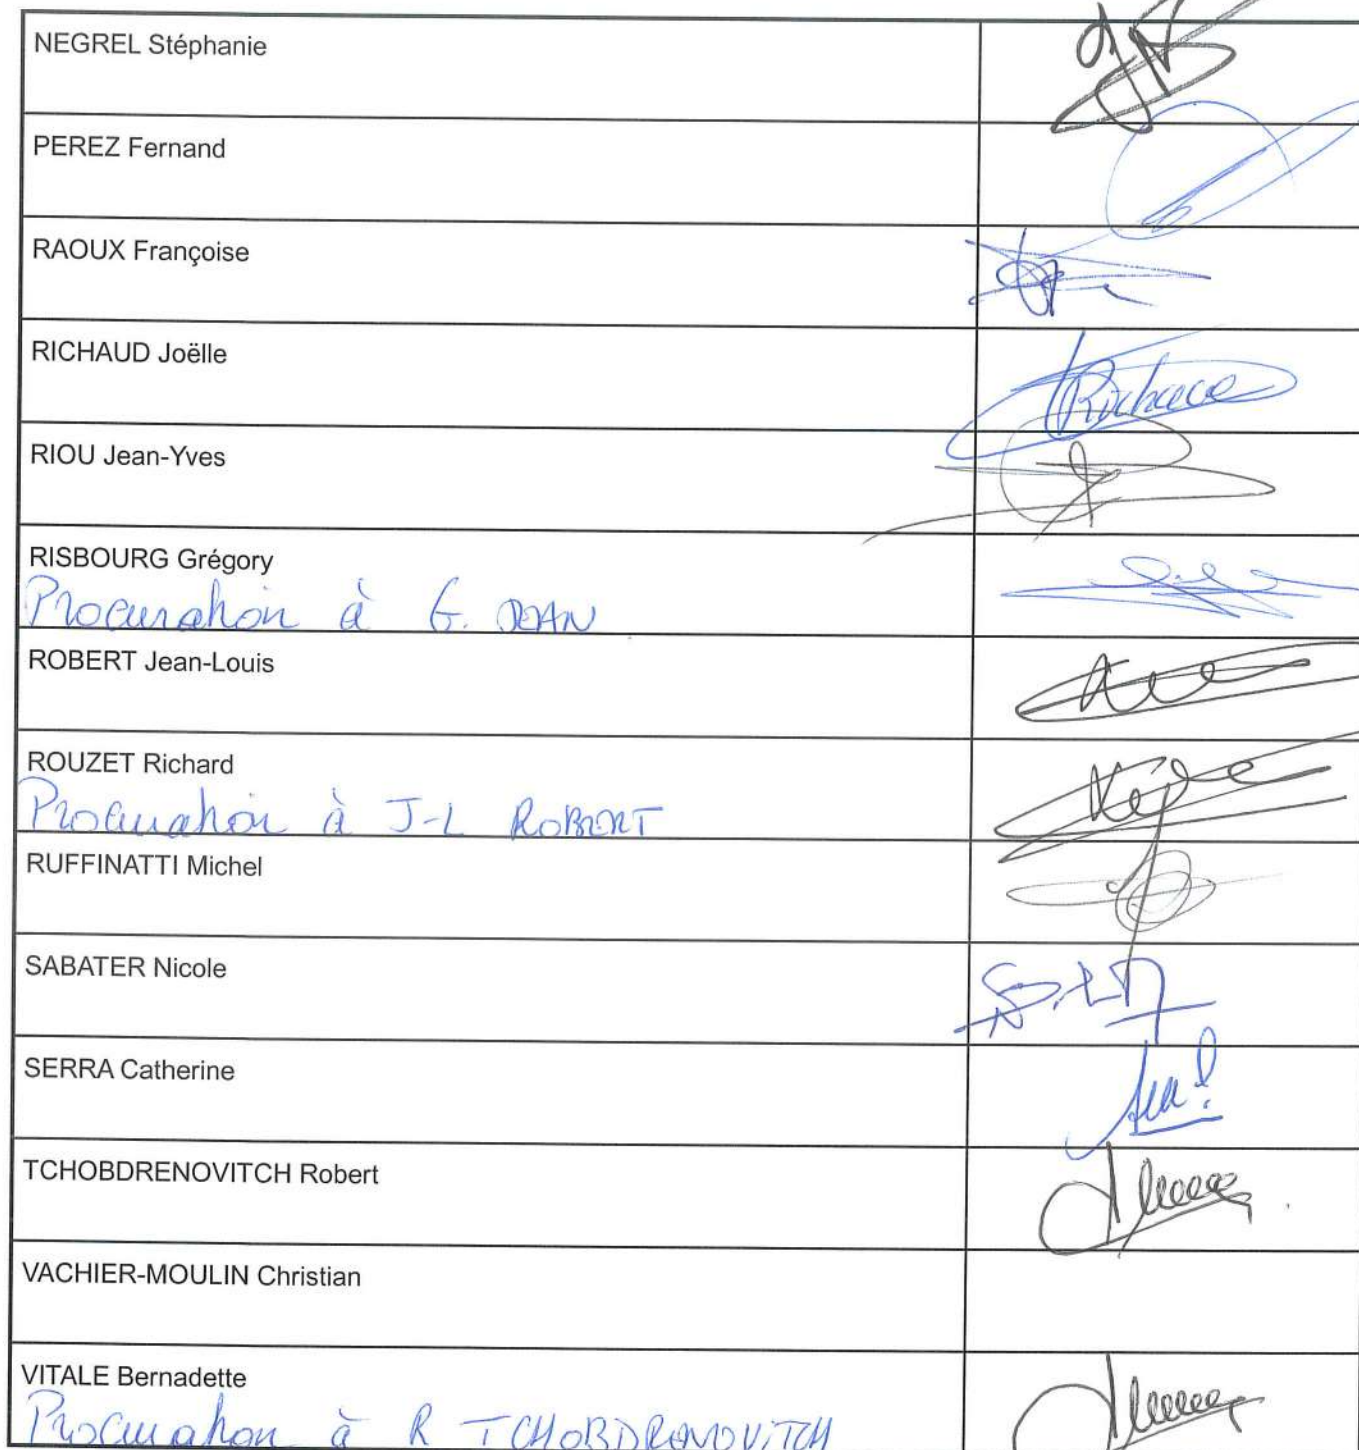 NEGREL Stéphanie
PEREZ Fernand
RAOUX Françoise
RICHAUD Joëlle
Richaud
RIOU Jean-Yves
RISBOURG Grégory
Procuration à G. JEAN
ROBERT Jean-Louis
ROUZET Richard
Procuration à J-L ROBERT
RUFFINATTI Michel
SABATER Nicole
SERRA Catherine
TCHOBDRENOVITCH Robert
VACHIER-MOULIN Christian
VITALE Bernadette
Procuration à R TCHOBDRENOVITCH